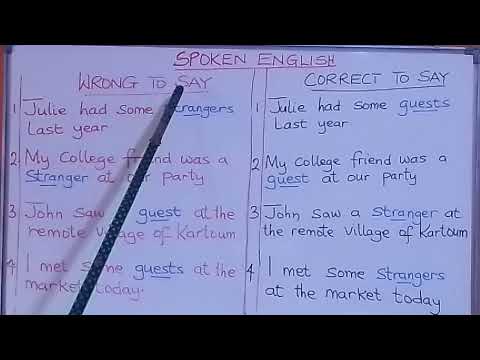 SPOKEN ENGLISH
WRONG TO SAY
1 Julie had some strangers
last year
2 My College friend was a
stranger at our party
3 John saw guest at the
remote village of Kartoum
4 I met some guests at the
market today.
CORRECT TO SAY
1 Julie had some guests
last year
2 My College friend was a
guest at our party
3 John saw a stranger at
the remote village of Kartoum
4 I met some strangers
at the market today